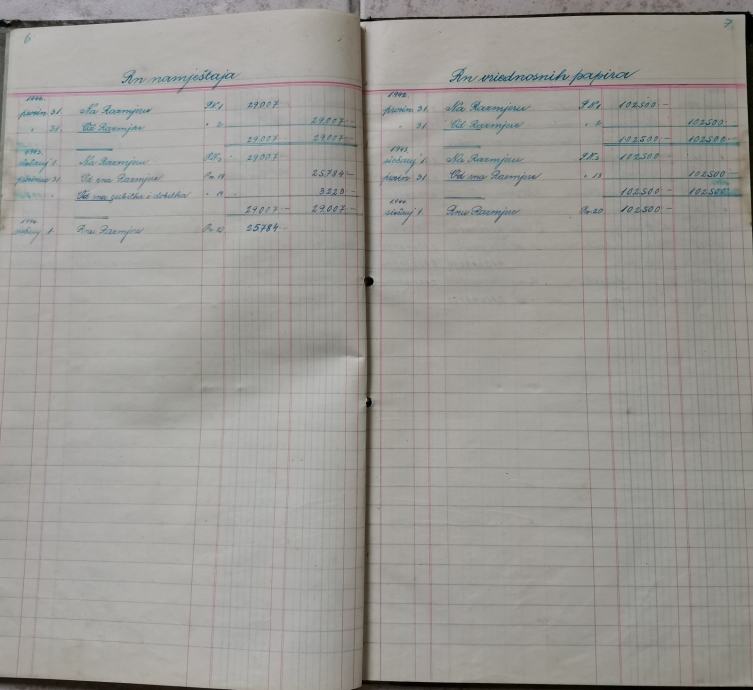 6
Rn namještaja
1942.
prosin. 31. Na Razmjeru P.K.1 29.007
" 31. Od Razmjere " 2 29.007.–
29.007 29.007.–
1943.
siečanj 1. Na Razmjeru P.K.2 29.007.–
prosinac 31 Od rna Razmjere Pr. 13 25.784.–
Od rna gubitka i dobitka " 14 3223.–
29.007.– 29.007.–
1944.
siečanj 1. Rnu Razmjere 25784.–
7.
Rn vriednosnih papira
1942.
prosin. 31. Na Razmjeru P.K.1 102500.–
" 31. Od Razmjere " 2 102500.–
102500.– 102500.–
1943.
siečanj 1. Na Razmjeru P.K.2 102500.–
prosin. 31 Od rna Razmjere " 13 102500.–
102500.– 102500.–
1944.
siečanj 1. Rnu Razmjere Pr. 20 102500.–